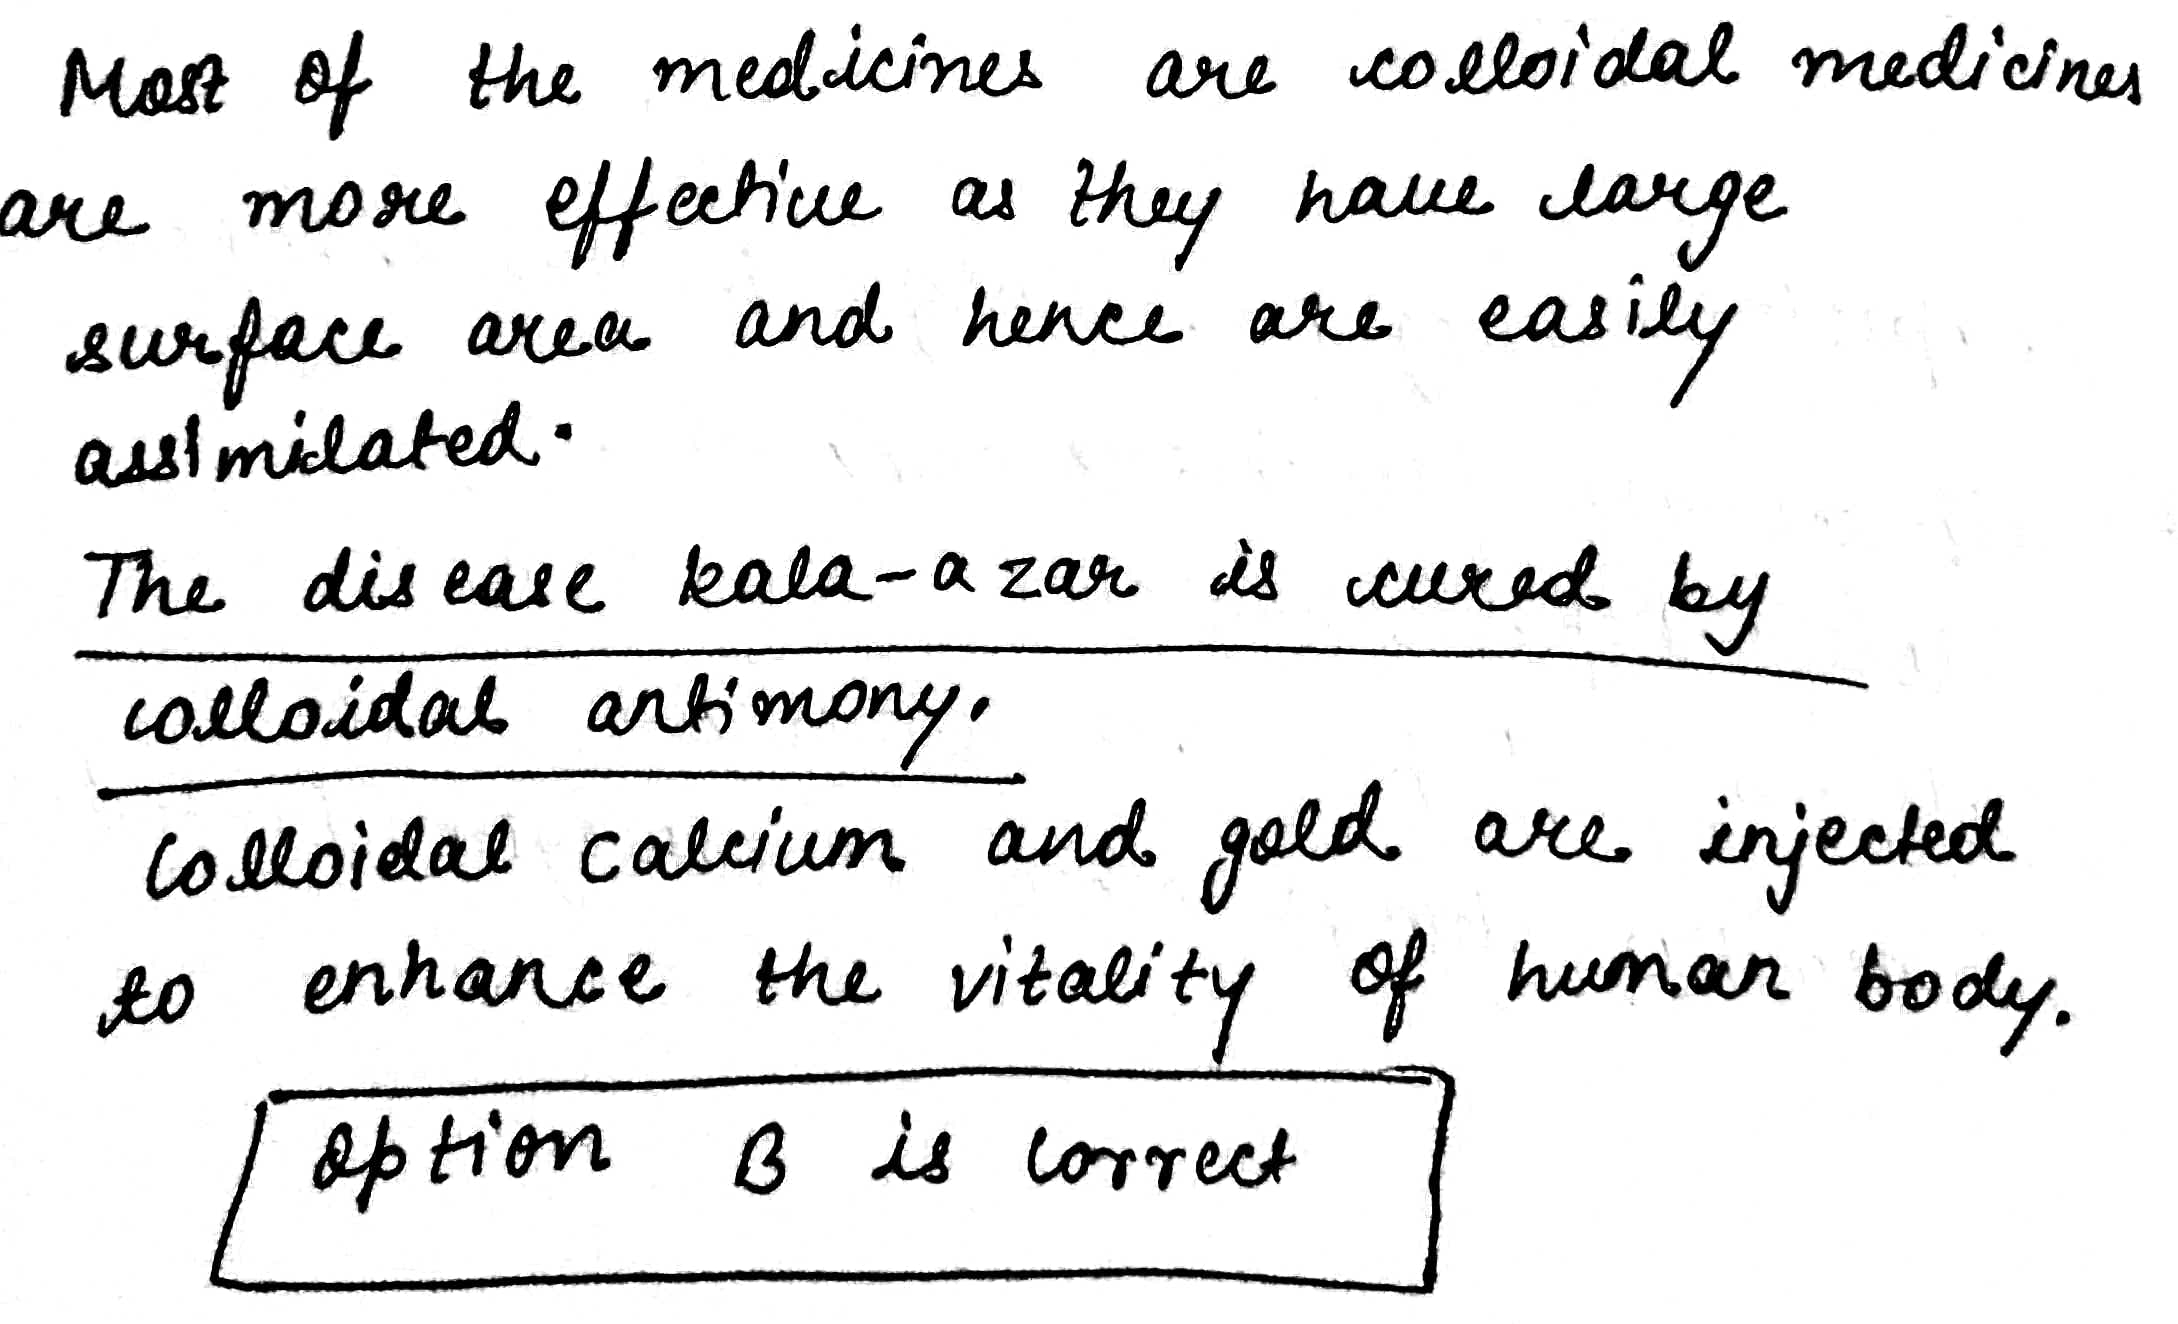 Most of the medicines are colloidal medicines
are more effective as they have large
surface area and hence are easily
assimilated.
The disease kala-azar is cured by
colloidal antimony.
Colloidal calcium and gold are injected
to enhance the vitality of human body.
Option B is correct